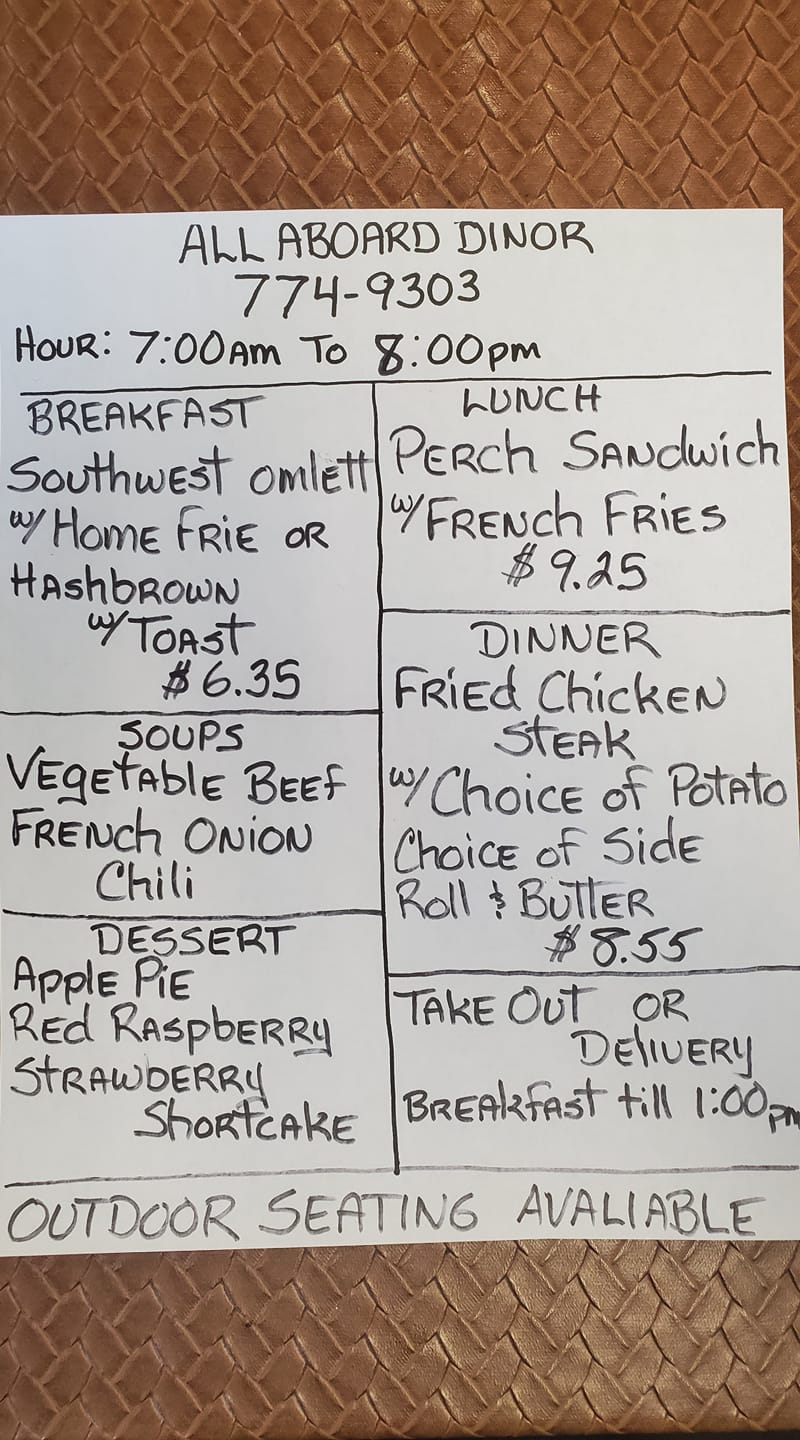 ALL ABOARD DINOR
774-9303
HOUR: 7:00AM TO 8:00PM
BREAKFAST
SOUTHWEST OMLETT
W/ HOME FRIE OR
HASHBROWN
W/ TOAST
$6.35
SOUPS
VEGETABLE BEEF
FRENCH ONION
Chili
DESSERT
Apple PiE
RED RASPBERRY
STRAWBERRY
SHORTCAKE
LUNCH
PERCH SANDWICH
W/ FRENCH FRIES
$9.25
DINNER
FRIED CHICKEN
STEAK
W/ CHOICE OF POTATO
CHOICE OF SIDE
Roll & BUTTER
$8.55
TAKE OUT OR
DELIVERY
BREAKFAST till 1:00PM
OUTDOOR SEATING AVALIABLE